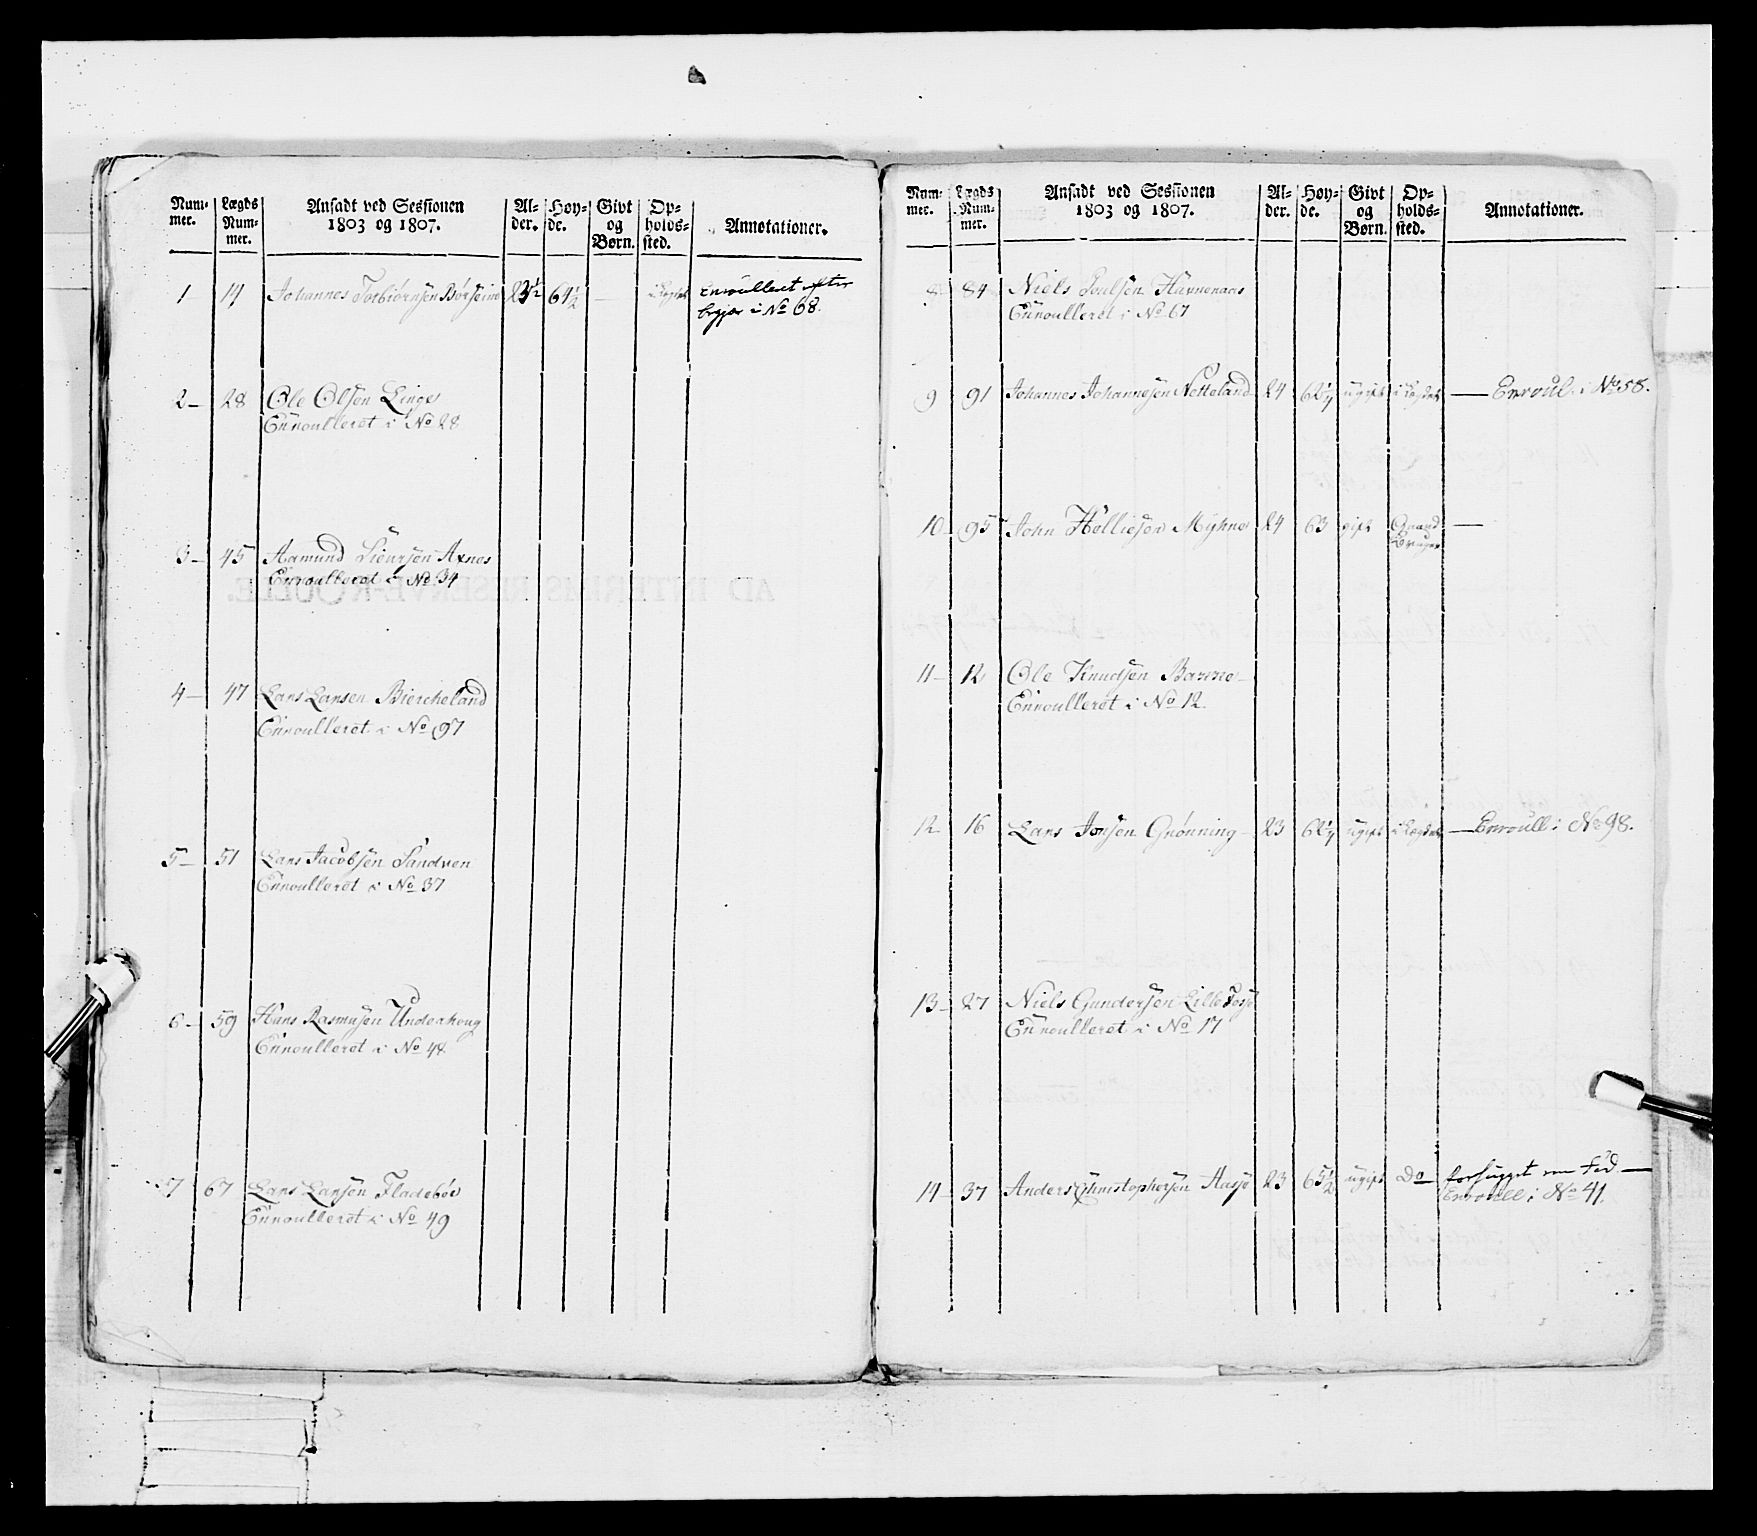 Num-
mer.
Lægds
Num-
mer.
Ansadt ved Sessionen
1803 og 1807.
Al-
der.
Høy-
de.
Givt
og
Børn.
Op-
holds-
sted.
Annotationer.
1 14 Johannes Torbiörnsen 23½ 64½ Enroulleret efter
i No 68.
2 28 Ole Olsen Linge
Enroulleret i No 28
3 45 Aamund Siursen Axnes
Enroulleret i No 34
4 47 Lars Larsen Bircheland
Enroulleret i No 97
5 51 Lars Jacobsen Sandven
Enroulleret i No 37
6 59 Hans Rasmusen Underhoug
Enroulleret i No 48
7 67 Lars Larsen Fladebøe
Enroulleret i No 49
AD INTERIMS RESERVE-ROULLE.
Num-
mer.
Lægds
Num-
mer.
Ansadt ved Sessionen
1803 og 1807.
Al-
der.
Høy-
de.
Givt
og
Børn.
Op-
holds-
sted.
Annotationer.
8 84 Niels Poulsen
Enroulleret i No 67
9 91 Johannes Johannesen Netteland 24 62¼ ugift i Lægdet — Enroul. i No 58.
10 95 John Helliesen Myhre 24 63 gift Gaard —
Bruger
11 12 Ole Knudsen
Enroulleret i No 12.
12 16 Lars Jonsen Grønning 23 62¼ ugift i Lægdet — Enroull i No 98.
13 27 Niels Gundersen Lille
Enroulleret i No 17
14 37 Anders Christophersen Aasjø 23 65½ ugift Do
Enroull i No 41.